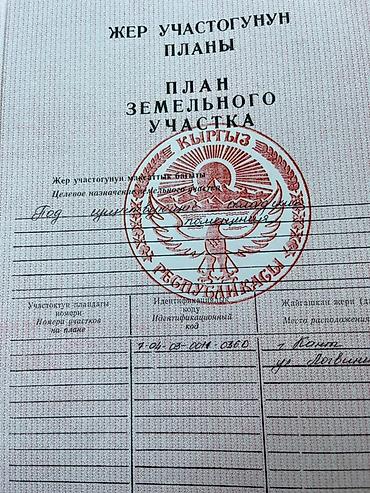 ЖЕР УЧАСТОГУНУН
ПЛАНЫ
ПЛАН
ЗЕМЕЛЬНОГО
УЧАСТКА
КЫРГЫЗ
РЕСПУБЛИКАСЫ
Жер участогунун максаттык багыты
Целевое назначение земельного участка
Под существующие складские
помещения
Участоктун пландагы номери
Номера участков на плане
Идентификациялык коду
Идентификационный код
Жайгашкан жери (да
Место расположения
7-04-03-0011-0360
г. Кант
ул. Логвин